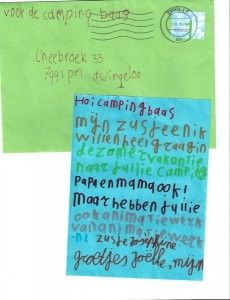 voor de camping baas
Lheebroek 33
7991 PM dwingeloo
Hoi campingbaas
mijn zusje en ik
willen heel graag in
de zomervakantie
naar jullie camping
Papa en mama ook!
Maar hebben jullie
ook animatiewerk
van animatiewerk
zusje Josephine
groetjes Joëlle, mijn